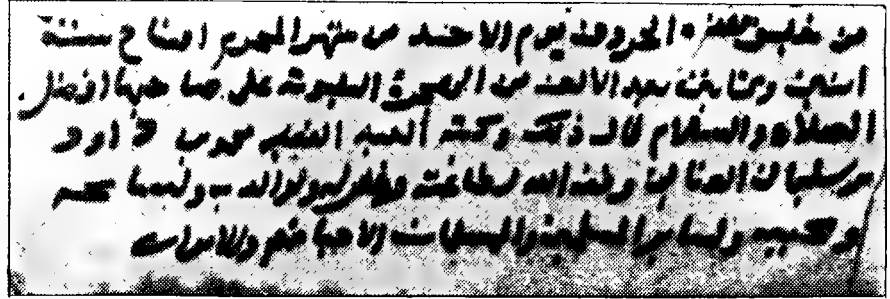 من خليق الحروف يوم الاحد من شهر المحرم افتتاح سنة
اثنين وثمانين بعد الالف من الهجرة النبوية على صاحبها افضل
الصلاة والسلام قال ذلك وكتبه العبد الفقير محمد بن داود
بن سليمان العناني وفقه الله لطاعته وغفر له ولوالديه ولمشايخه
ومحبيه ولسائر المسلمين والمسلمات الاحياء منهم والاموات